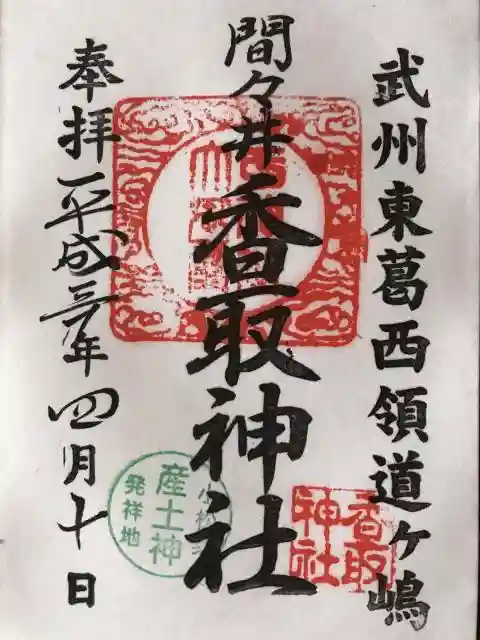 武州東葛西領道ヶ嶋
間々井
香取神社
奉拝
平成三十年四月十日
香取
神社
小松菜
産土神
発祥地